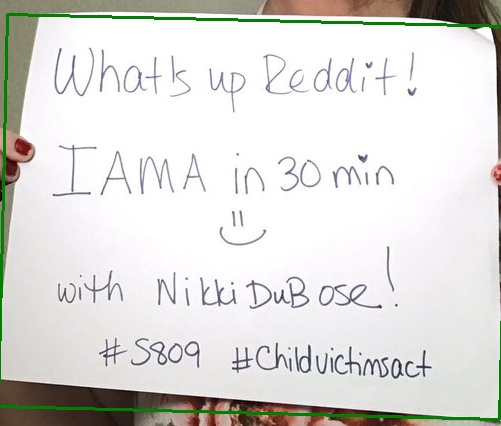 What's up Reddit!
IAMA in 30 min
with Nikki DuBose!
#S809 #Childvictimsact